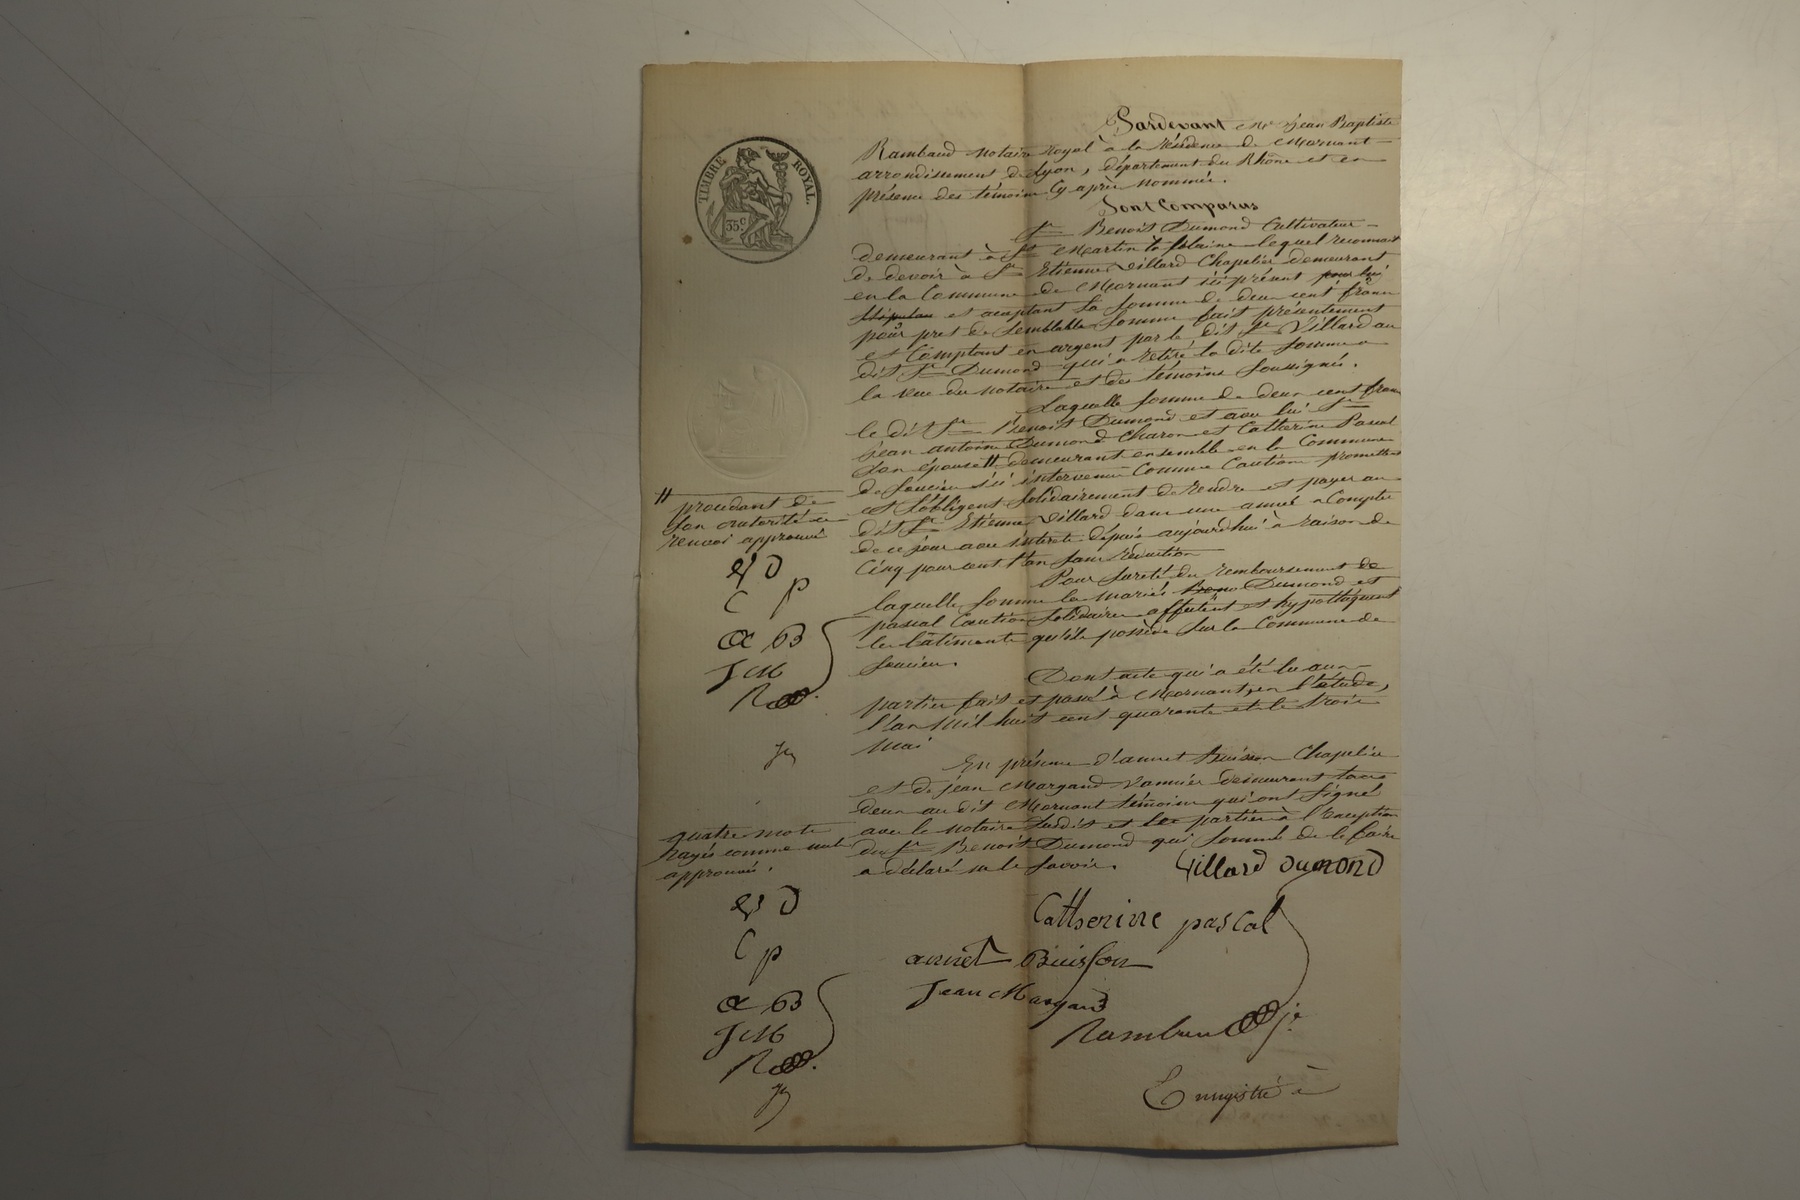 TIMBRE ROYAL.
35 c
Pardevant Me Jean Baptiste
Rambaud notaire royal à la résidence de Mornant
arrondissement de Lyon, département du Rhône et en
présence des témoins cy après nommés.
Sont Comparus
Sr Benoit Dumond Cultivateur
demeurant à St Martin la plaine lequel reconnait
de devoir à Sr Etienne Villard Chapelier demeurant
en la Commune de Mornant ici présent pour lui
stipulan et acceptant la somme de deux cent francs
pour pret de semblable somme fait présentement
et Comptant en argent par le dit Sr Villard au
dit Sr Dumond qui a retiré la dite somme a
la vue du notaire et des témoins soussignés.
Laquelle somme de deux cent francs
le dit Sr Benoit Dumond et avec lui Sr
jean antoine Dumond Charon et Catherine Pascal
son épouse # demeurant ensemble en la Commune
de Soucieu ici intervenus comme Caution promettent
et s'obligent solidairement de rendre et payer au
dit Sr Etienne Villard dans une année a Compter
de ce jour avec intérêts depuis aujourd'hui à raison de
Cinq pour cent l'an sans réduction
Pour sureté du remboursement de
laquelle somme les mariés Beno Dumond et
pascal Caution solidaires affectent et hypothèquent
les bâtiments qu'ils possède sur la Commune de
Soucieu.
Dont acte qui a été lu aux
parties fait et passé à Mornant, en l'étude,
l'an Mil huit cent quarante et le trois
Mai
En présence d'annet Buisson Chapelier
et de jean Margand Vannier demeurant tous
deux au dit Mornant témoins qui ont signé
avec le notaire susdit et les parties à l'exception
du Sr Benoit Dumond qui sommé de le faire
a déclaré ne le savoir.
# procédant de
son autorité ce
renvoi approuvé
D
C p
a B
J M
R
quatre mots
rayés comme nuls
approuvés.
D
C p
a B
J M
R
Villard Dumond
Catherine pascal
annet Buisson
Jean Margand
Rambaud
Enregistré à